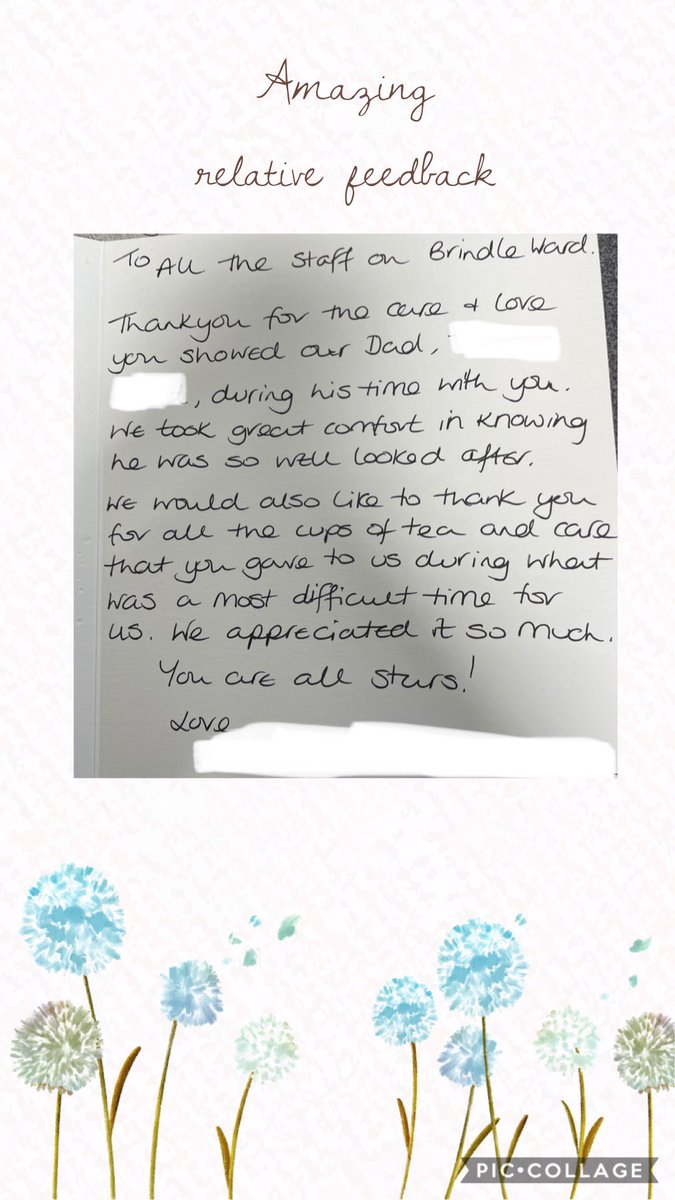 Amazing
relative feedback
To All the staff on Brindle Ward.
Thankyou for the care & love
you showed our Dad,
, during his time with you.
We took great comfort in knowing
he was so well looked after.
We would also like to thank you
for all the cups of tea and care
that you gave to us during what
was a most difficult time for
us. We appreciated it so much.
You are all stars!
Love
PIC•COLLAGE